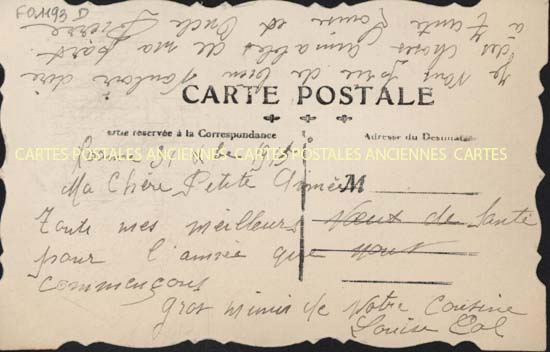 FO1193 D
Je vous prie de bien vouloir dire
des choses aimables de ma part
à Tante Louise et Oncle Pierre
CARTE POSTALE
Partie réservée à la Correspondance
Adresse du Destinataire
CARTES POSTALES ANCIENNES CARTES POSTALES ANCIENNES CARTES
Ma Chère Petite Aimée
M
Toute mes meilleurs Vœux de Santé
pour l'année que nous
commençons
Gros mimis de Votre Cousine
Louise Col